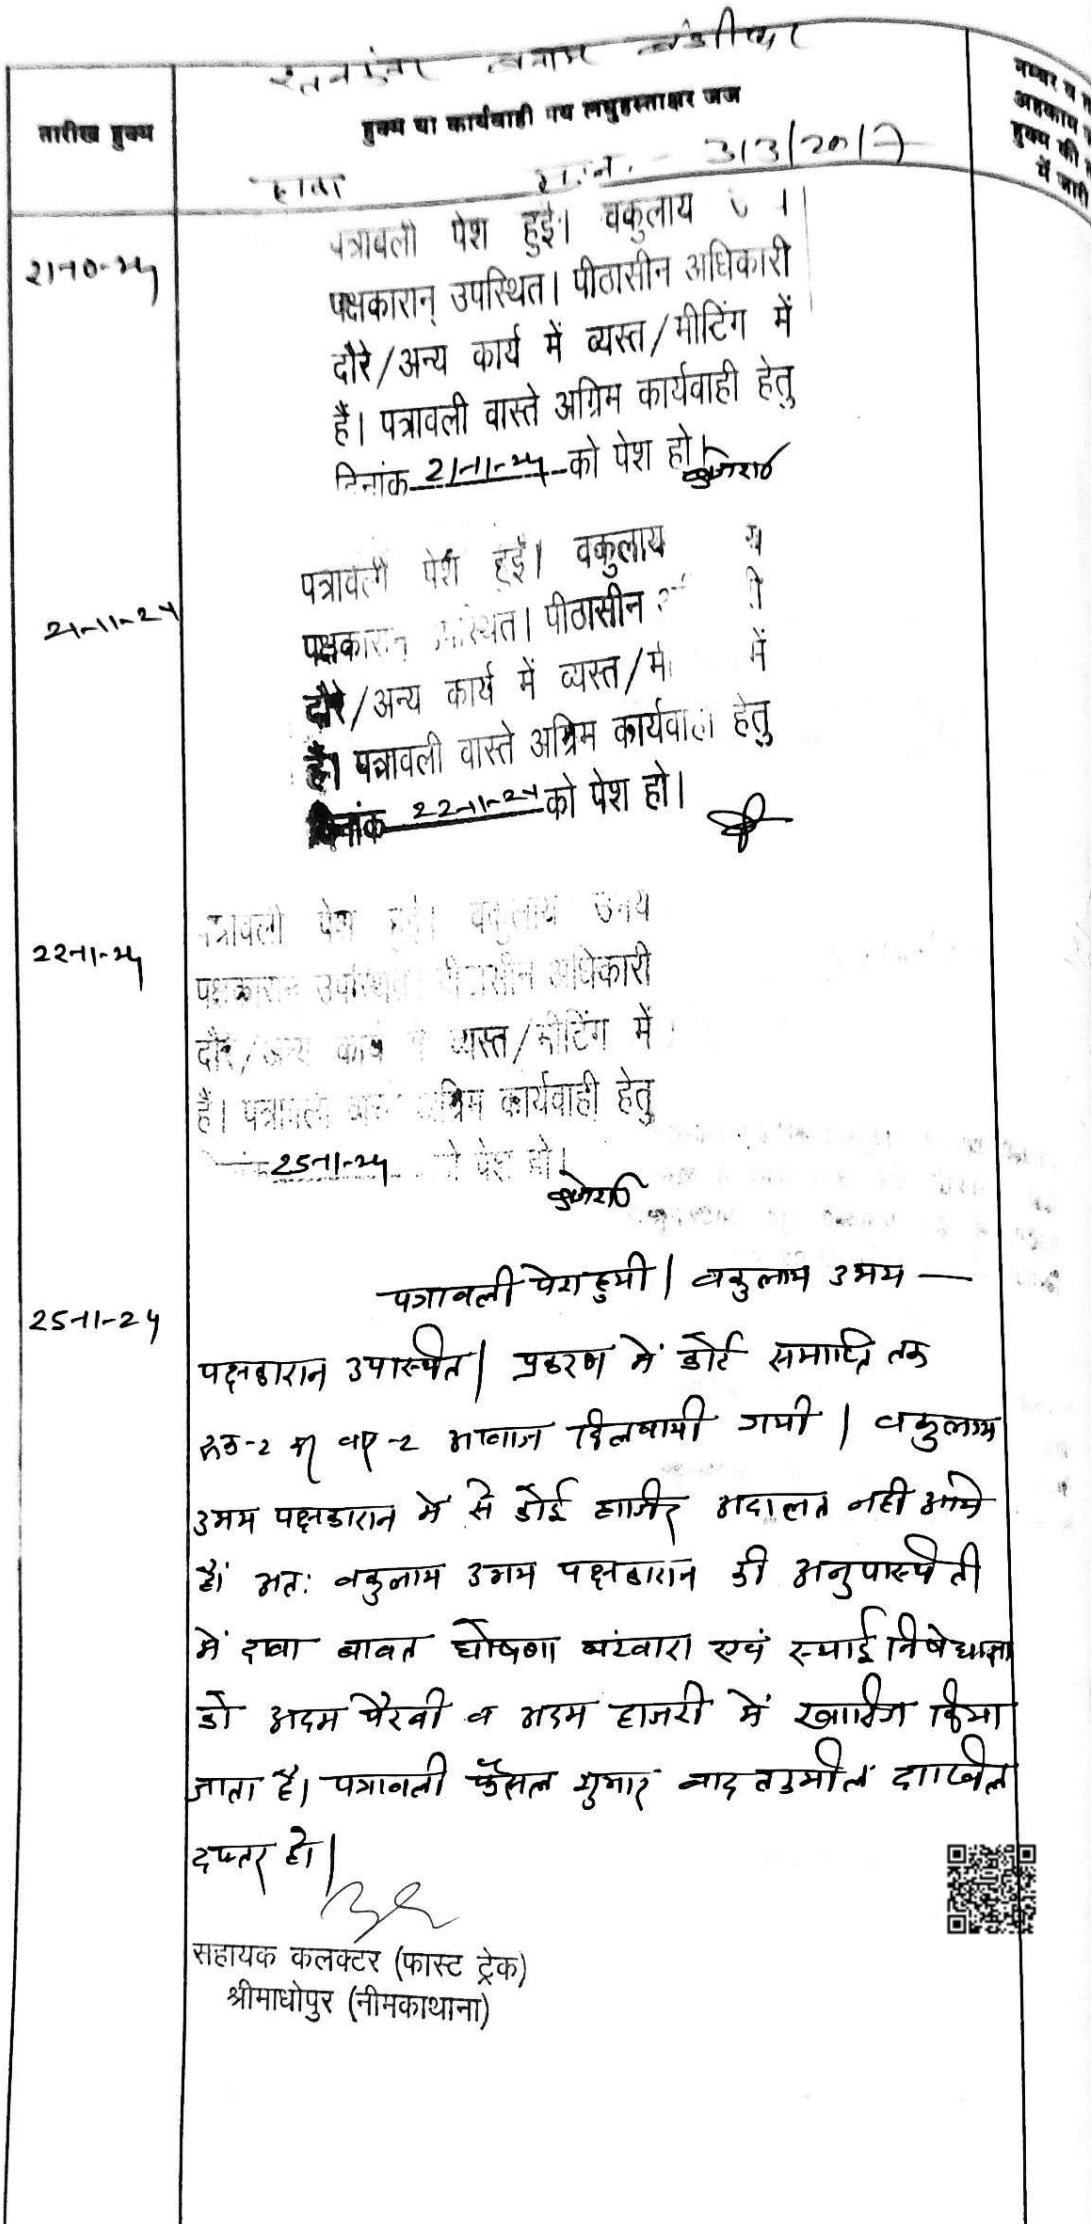 बनाम
तारीख हुक्म
हुक्म या कार्यवाही मय लघुहस्ताक्षर जज
नम्बर व
अहकाम
हुक्म की
में जारी
दावा 313/2017
21-10-24
पत्रावली पेश हुई। वकुलाय
पक्षकारान् उपस्थित। पीठासीन अधिकारी
दौरे/अन्य कार्य में व्यस्त/मीटिंग में
हैं। पत्रावली वास्ते अग्रिम कार्यवाही हेतु
दिनांक 21-11-24 को पेश हो।
21-11-24
पत्रावली पेश हुई। वकुलाय
पक्षकारान स्थित। पीठासीन
दौरे/अन्य कार्य में व्यस्त/मी में
हैं। पत्रावली वास्ते अग्रिम कार्यवाही हेतु
दिनांक 22-11-24 को पेश हो।
22-11-24
पत्रावली पेश हुई। वकुलाय उभय
पक्षकारान उपस्थित। पीठासीन अधिकारी
दौरे/अन्य कार्य में व्यस्त/मीटिंग में
हैं। पत्रावली वास्ते अग्रिम कार्यवाही हेतु
25-11-24 को पेश हो।
25-11-24
पत्रावली पेश हुयी। वकुलाय उभय —
पक्षकारान उपस्थित। प्रकरण में कोर्ट समाप्ति तक
रूक-2 कर वार-2 आवाज दिलवायी गयी। वकुलाय
उभय पक्षकारान में से कोई हाजिर अदालत नही आये
है। अतः वकुलाय उभय पक्षकारान की अनुपस्थिती
में दावा बाबत घोषणा बंटवारा एवं स्थाई निषेधाज्ञा
को अदम पैरवी व अदम हाजरी में खारिज किया
जाता है। पत्रावली फैसल शुमार बाद तकमील दाखिल
दफ्तर हो।
सहायक कलक्टर (फास्ट ट्रेक)
श्रीमाधोपुर (नीमकाथाना)